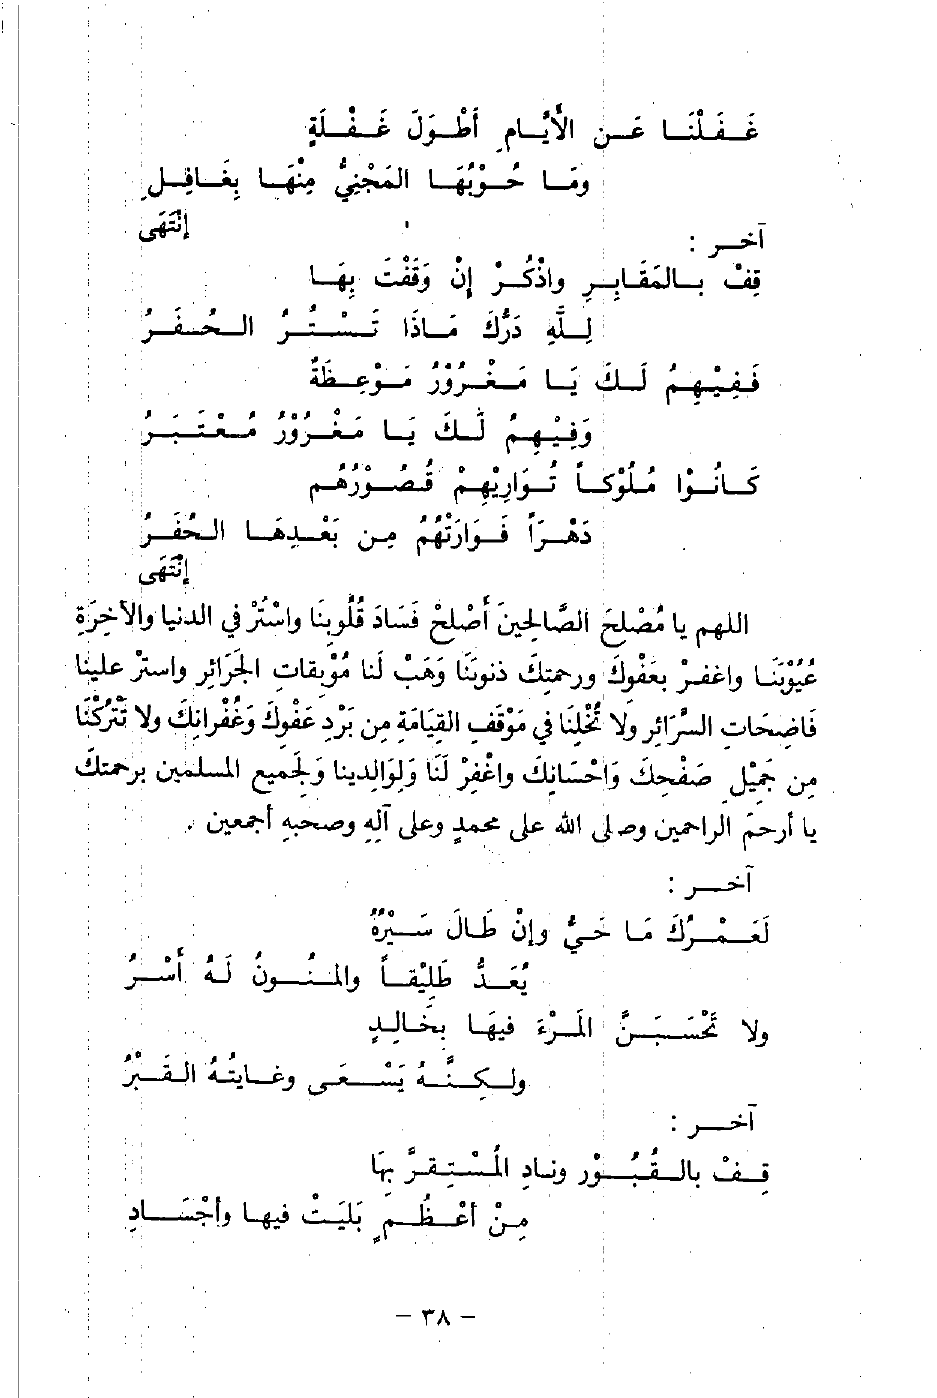 غَفَلْنَا عَن الأَيَّامِ أَطْوَلَ غَفْلَةٍ
ومَا حُوْبُهَا المَجْنِيُّ مِنْهَا بِغَافِلِ
إِنْتَهَى
آخر :
قِفْ بالمَقَابِرِ واذْكُرْ إِنْ وَقَفْتَ بِهَا
لِلَّهِ دَرُّكَ مَاذَا تَسْتُرُ الحُفَرُ
فَفِيْهِمُ لَكَ يَا مَغْرُوْرُ مَوْعِظَةٌ
وَفِيْهِمُ لَكَ يَا مَغْرُوْرُ مُعْتَبَرُ
كَانُوْا مُلُوْكاً تُوَارِيْهِمْ قُصُوْرُهُم
دَهْرَاً فَوَارَتْهُمُ مِن بَعْدِهَا الحُفَرُ
إِنْتَهَى
اللهم يا مُصْلِحَ الصَّالِحِينَ أَصْلِحْ فَسَادَ قُلُوبِنَا واسْتُرْ في الدنيا والآخِرَةِ
عُيُوْبَنَا واغفرْ بعَفْوكَ ورحمتِكَ ذنوبَنَا وَهَبْ لَنا مُوْبقاتِ الجَرَائرِ واسترْ علينا
فَاضِحَاتِ السَّرَائرِ ولا تُخْلِنَا في مَوْقفِ القِيَامَةِ مِن بَرْدِ عَفْوِكَ وَغُفْرانِكَ ولا تَتْرُكْنَا
مِن جَمِيْلِ صَفْحِكَ وَاحْسَانِكَ واغْفِرْ لَنَا وَلِوَالِدينا وَلجَميعِ المسلمين برحمتكَ
يا أَرحمَ الراحمين وصلى الله على محمدٍ وعلى آلِهِ وصحبهِ أجمعين .
آخر :
لَعَمْرُكَ مَا حَيٌّ وإنْ طَالَ سَيْرُهُ
يُعَدُّ طَلِيْقاً والمنُونُ لَهُ أَسْرُ
ولا تَحْسَبَنَّ المَرْءَ فيهَا بِخَالِدٍ
ولكِنَّهُ يَسْعَى وغايتُهُ القَبْرُ
آخر :
قِفْ بالقُبُوْرِ ونادِ المُسْتِقرَّ بِهَا
مِنْ أعْظُمٍ بَلِيَتْ فيها وأجْسَادِ
– ٣٨ –